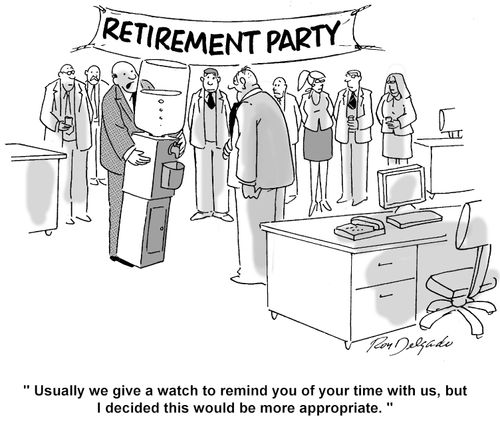 RETIREMENT PARTY
Roy Delgado
" Usually we give a watch to remind you of your time with us, but
I decided this would be more appropriate. "